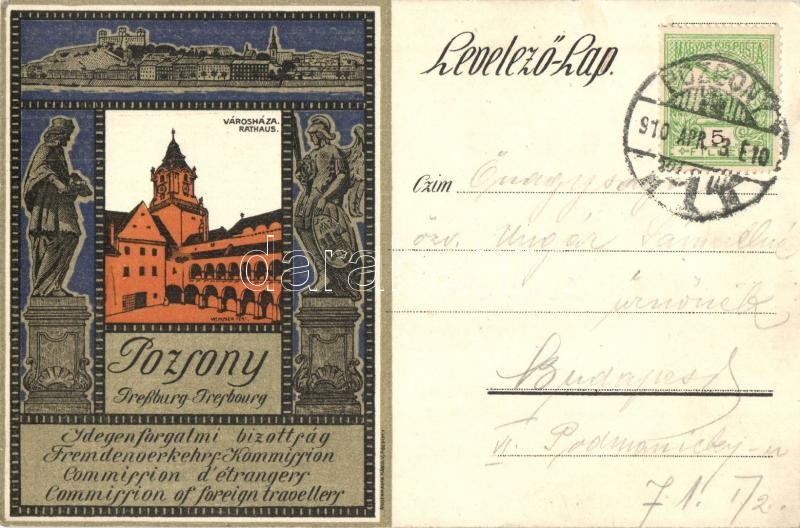 VÁROSHÁZA.
RATHAUS.
Pozsony
Preßburg-Presbourg
Idegenforgalmi bizottság
Fremdenverkehrs-Kommission
Commission d'étrangers
Commission of foreign travellers
Levelező-Lap.
MAGYAR KIR. POSTA
5
FILLÉR
POZSONY
910 APR. 3. E10
Czim
özv. Ungár
úrnőnek
Budapest
VI. Podmaniczky-u
71. I/2.
darabanth